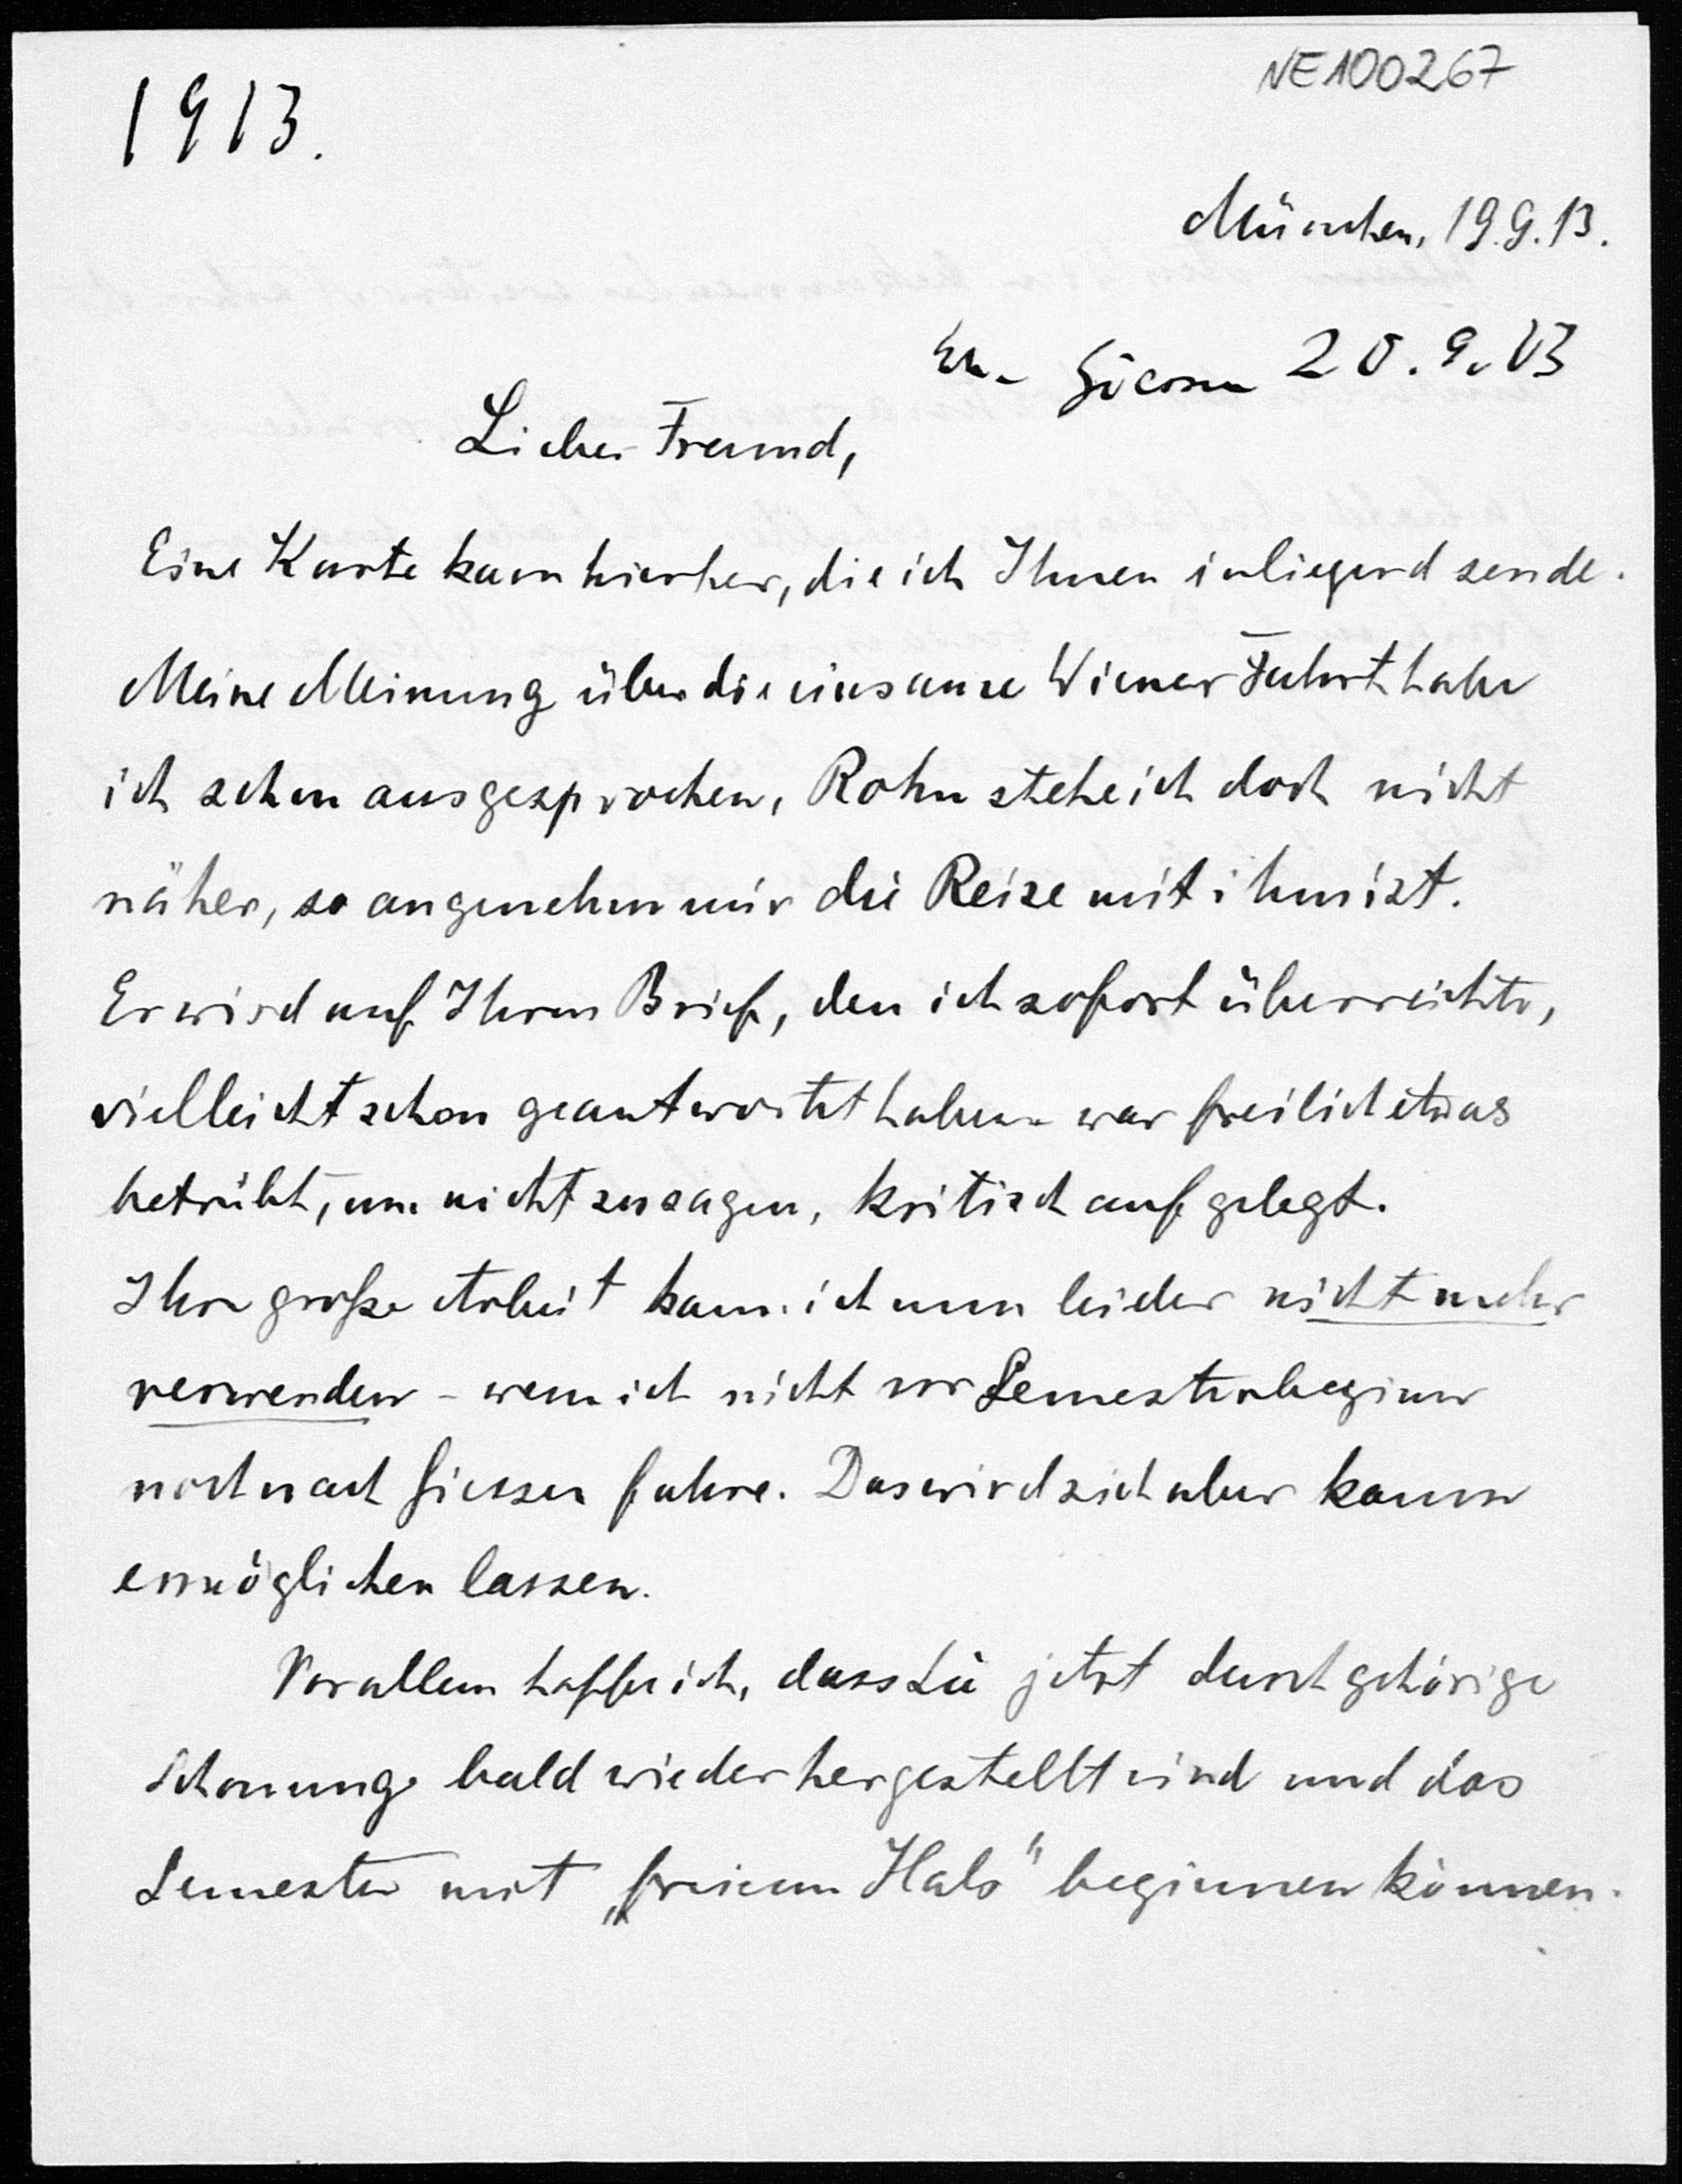 NE100267
1913.
München, 19.9.13.
Giessen 20.9.13
Lieber Freund,
Eine Karte kam hierher, die ich Ihnen inliegend sende.
Meine Meinung über die einsame Wiener Fahrt habe
ich schon ausgesprochen, Rohn stehe ich doch nicht
näher, so angenehm mir die Reise mit ihm ist.
Er wird auf Ihren Brief, den ich sofort überreichte,
vielleicht schon geantwortet haben – war freilich etwas
betrübt, um nicht zu sagen, kritisch aufgelegt.
Ihre große Arbeit kann ich nun leider nicht mehr
verwenden – wenn ich nicht vor Semesterbeginn
noch nach Giessen fahre. Das wird sich aber kaum
ermöglichen lassen.
Vor allem hoffe ich, dass Sie jetzt durch gehörige
Schonung bald wiederhergestellt sind und das
Semester mit „freiem Hals" beginnen können.